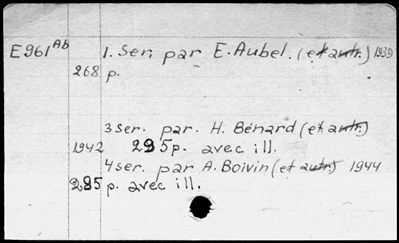 E961 Ab 1. Ser. par E. Aubel. (et autr.) 1939
268 p.
3 ser. par. H. Bénard (et autr.)
1942 295 p. avec ill.
4 ser. par A. Boivin (et autr.) 1944
295 p. avec ill.